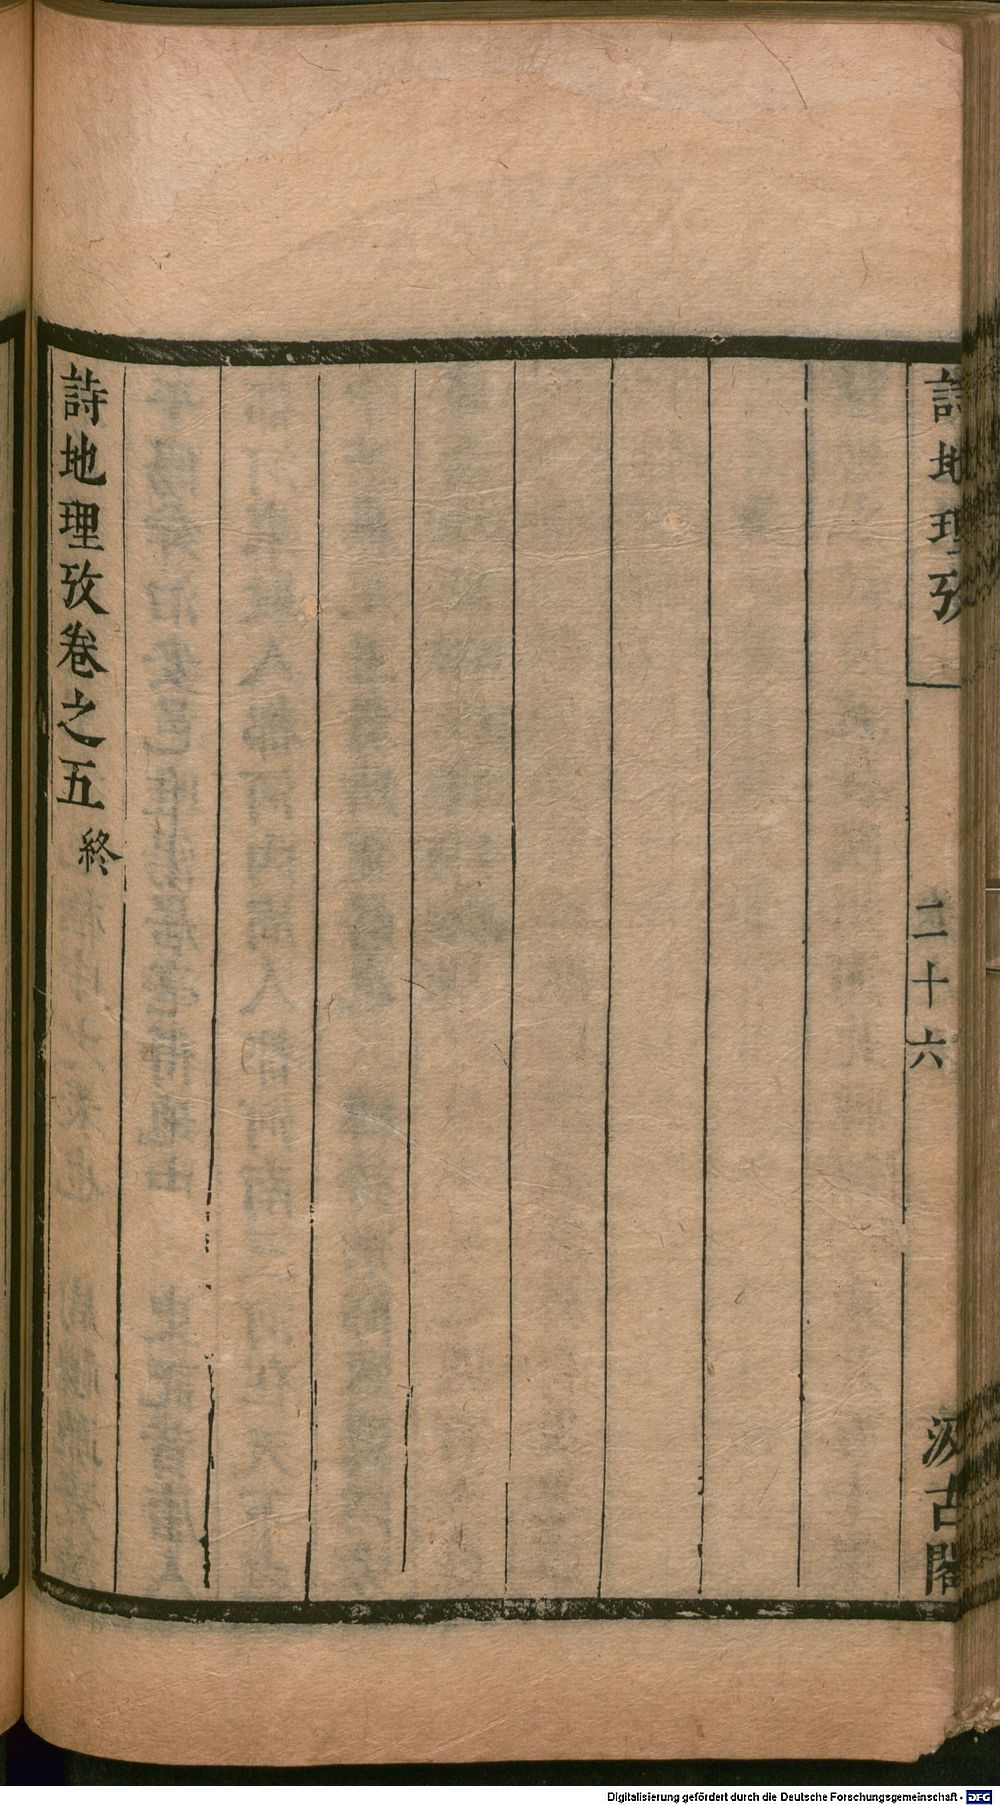 詩地理攷
二十六
汲古閣
詩地理攷卷之五 終
Digitalisierung gefördert durch die Deutsche Forschungsgemeinschaft - DFG